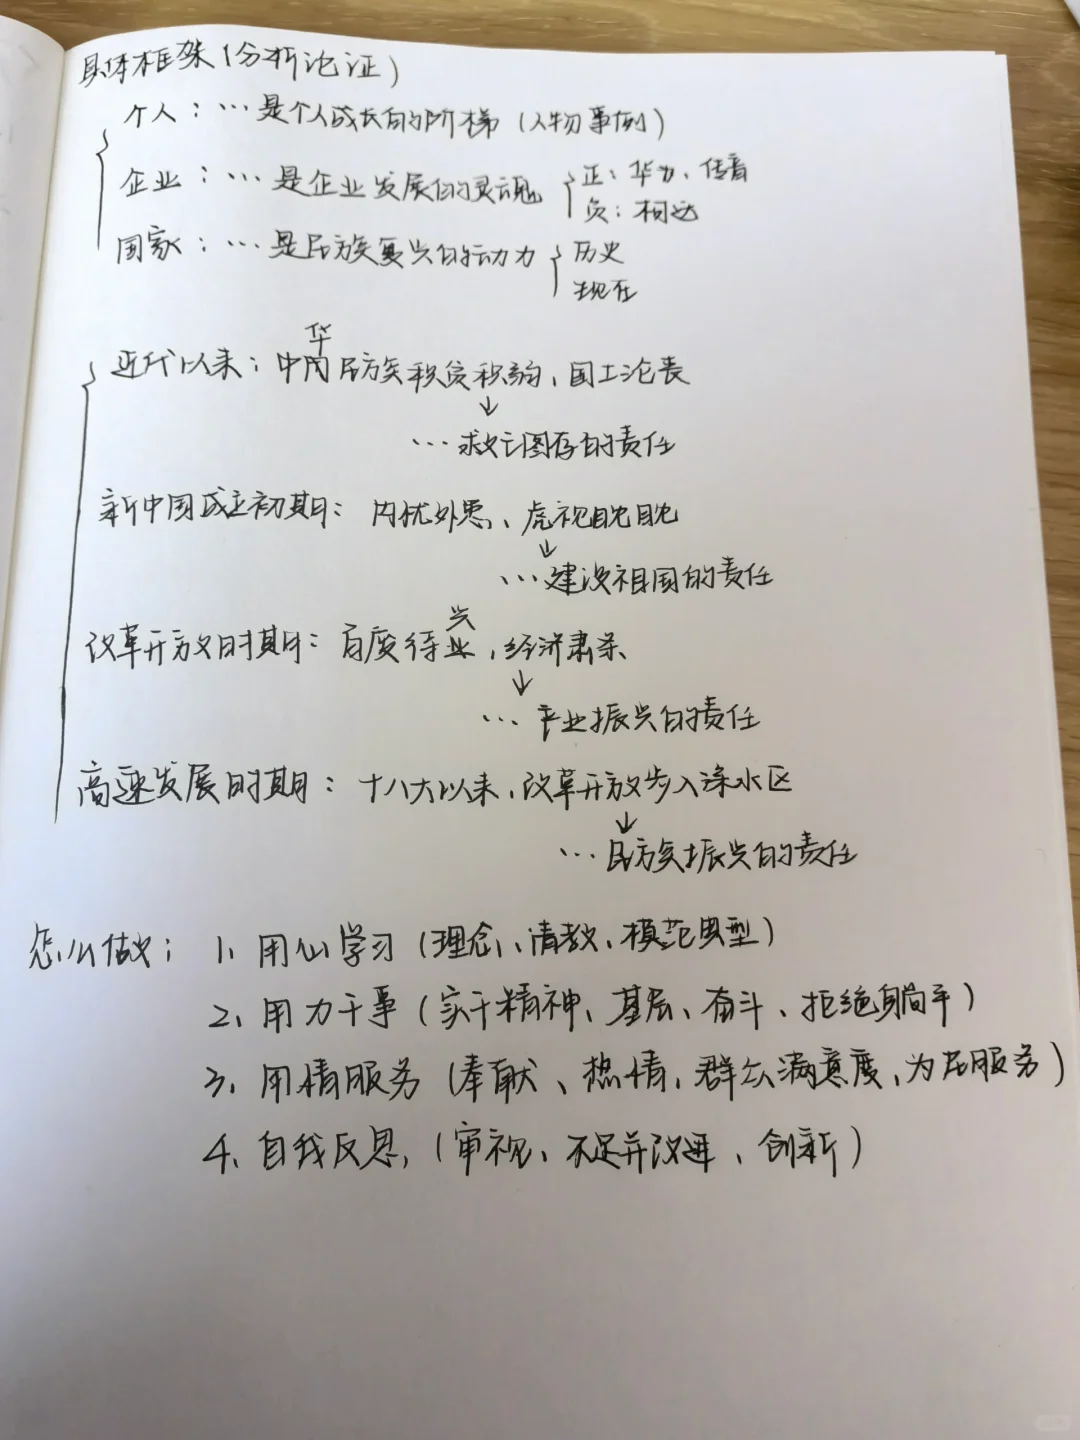 具体框架(分析论证)
个人：…是个人成长的阶梯（人物事例）
企业：…是企业发展的灵魂
正：华为、传音
负：柯达
国家：…是民族复兴的动力
历史
现在
华
近代以来：中国民族积贫积弱、国土沦丧
↓
…救亡图存的责任
新中国成立初期：内忧外患、虎视眈眈
↓
…建设祖国的责任
兴
改革开放时期：百废待业，经济肃条
↓
…产业振兴的责任
高速发展时期：十八大以来，改革开放步入深水区
↓
…民族振兴的责任
怎么做：1、用心学习（理念、请教、模范典型）
2、用力干事（实干精神、基层、奋斗、拒绝躺平）
3、用情服务（奉献、热情、群众满意度、为民服务）
4、自我反思，（审视、不足并改进、创新）